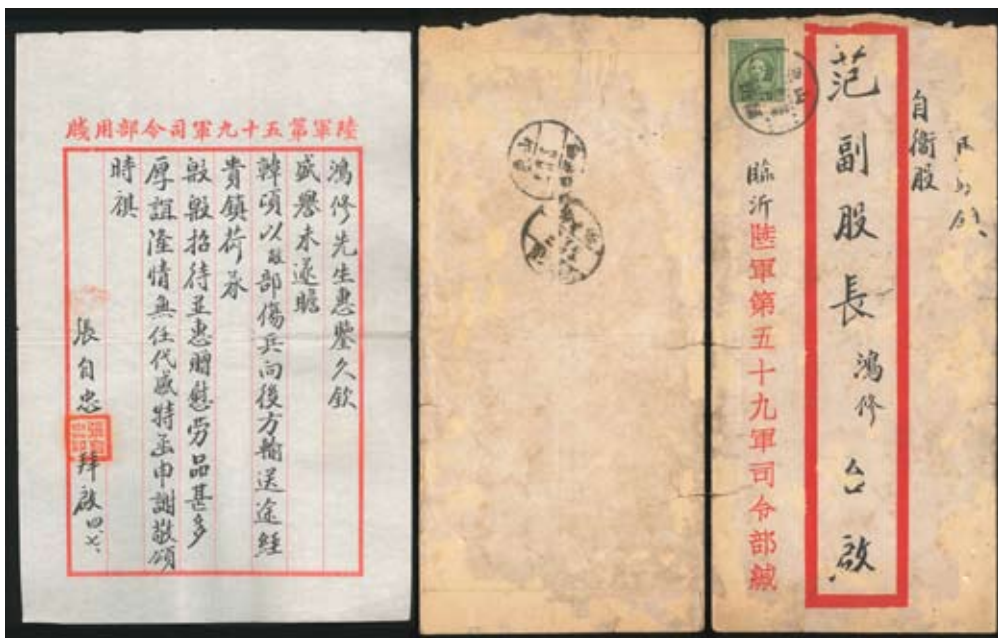 陸軍第五十九軍司令部用牋
鴻修先生惠鑒久欽
盛譽未遂瞻
韓頃以敝部傷兵向後方輸送途經
貴鎮荷承
殷殷招待並惠贈慰勞品甚多
厚誼隆情無任代感特函申謝敬頌
時祺
張自忠
拜啟 四、七、
自衛股
范副股長鴻修台啟
臨沂陸軍第五十九軍司令部緘